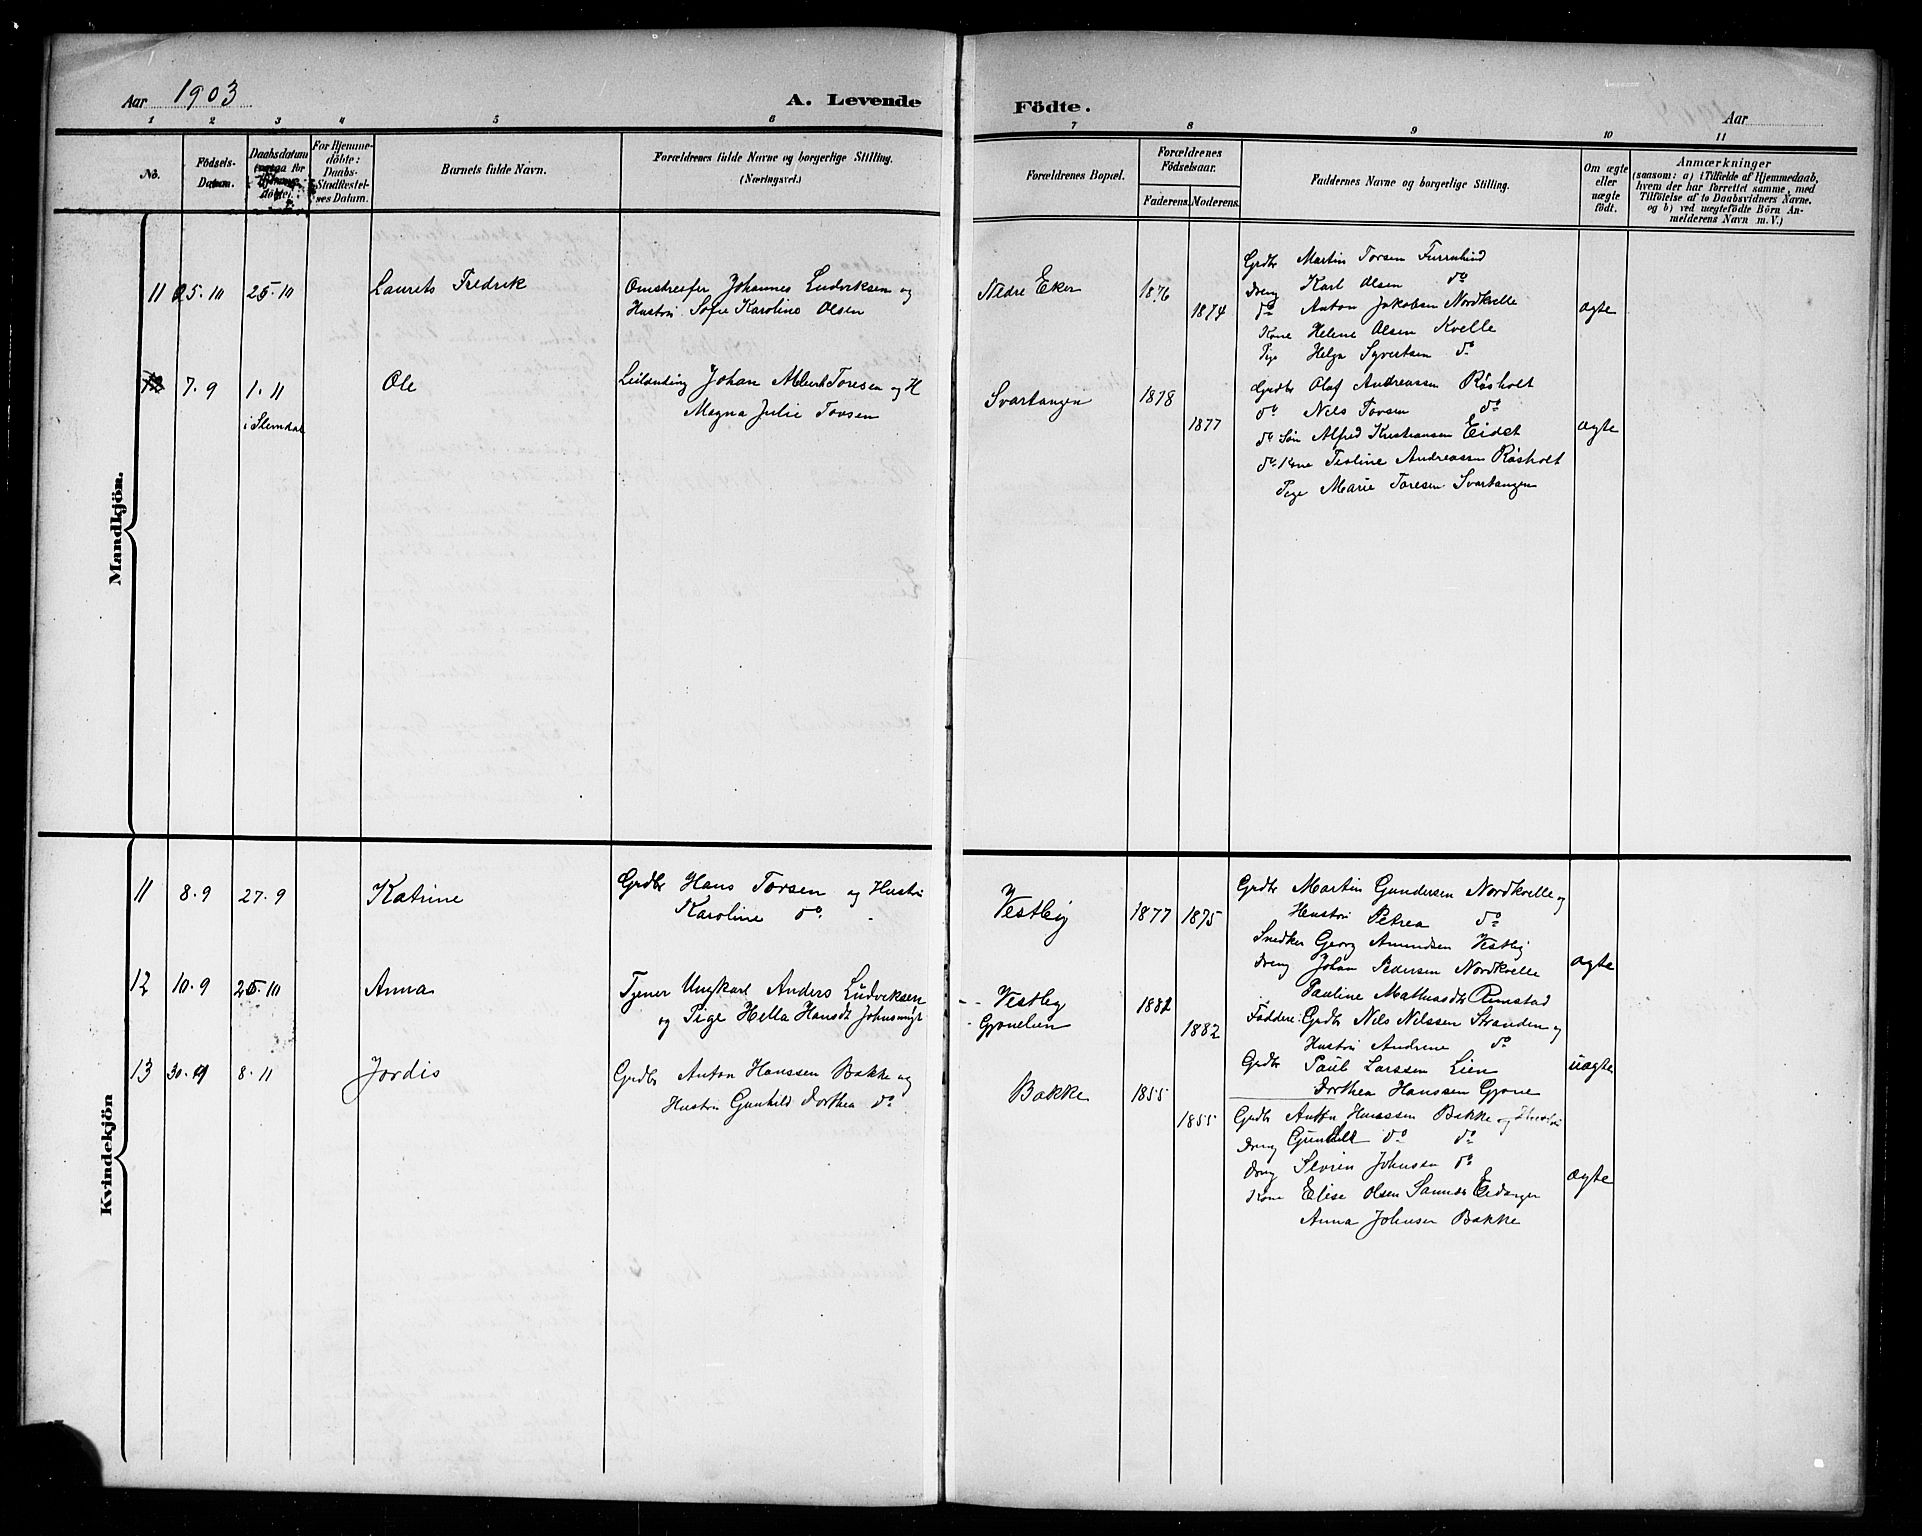 Aar 1903
A. Levende Födte.
Aar
1 2 3 4 5 6 7 8 9 10 11
No.
Födsels-
Datum.
Daabsdatum
For Hjemme-
döbte:
Daabs-
Stadfæstel-
ses Datum.
Barnets fulde Navn.
Forældrenes fulde Navne og borgerlige Stilling.
(Næringsvei.)
Forældrenes Bopæl.
Forældrenes
Födselsaar.
Faderens. Moderens.
Faddernes Navne og borgerlige Stilling.
Om ægte
eller
uægte
födt.
Anmærkninger
(saasom: a) i Tilfælde af Hjemmedaab,
hvem der har forrettet samme, med
Tilföielse af to Daabsvidners Navne.
og b) ved uægtefödte Börn An-
melderens Navn m. V.)
Mandkjön.
11 5.10 25.10 Laurits Fredrik
Omstreifer Johannes Ludviksen og
Hustru Sofie Karoline Olsen
Nedre Eker 1876
1874
Grdbr Martin Torsen Furulund
Dreng Karl Olsen do
do Anton Jakobsen Nordkvelle
Kone Helene Olsen Kvelle
Pige Helga Syvertsen do
ægte
12 7.9 1.11
i Slemdal
Ole
Leilending Johan Albert Toresen og H
Magna Julie Torsen
Svartangen 1878
1877
Grdbr Olaf Andreassen Råsholt
do Nils Torsen do
do Søn Alfred Kristiansen Eidet
do Kone Tioline Andreassen Råsholt
Pige Marie Toresen Svartangen
ægte
Kvindekjön
11 8.9 27.9 Katrine
Grdbr Hans Torsen og Hustru
Karoline do.
Vestby 1877 1875
Grdbr Martin Gundersen Nordkvelle og
Hustru Petrea do
Snedker Georg Amundsen Vestby
Dreng Johan Pedersen Nordkvelle
Pauline Mathiasdtr Rimstad
ægte
12 10.9 25.10 Anna
Tjener Ungkarl Anders Ludviksen
og Pige Hella Hansdt
Vestby
Gjonelien
1882
1882
Faddere: Grdbr Nils Nilssen Stranden og
Hustru Andrene do
Grdbr Paul Larssen Lien
Dorthea Hanssen Gjone
uægte
13 30.9 8.11 Jordis
Grdbr Anton Hanssen Bakke og
Hustru Gunhild Dorthea do
Bakke 1855
1855
Grdbr Anton Hanssen Bakke og Hustru
Gunhild do do
Dreng Severin Johnsen do
Kone Elise Olsen Eidanger
Anna Johnsen Bakke
ægte